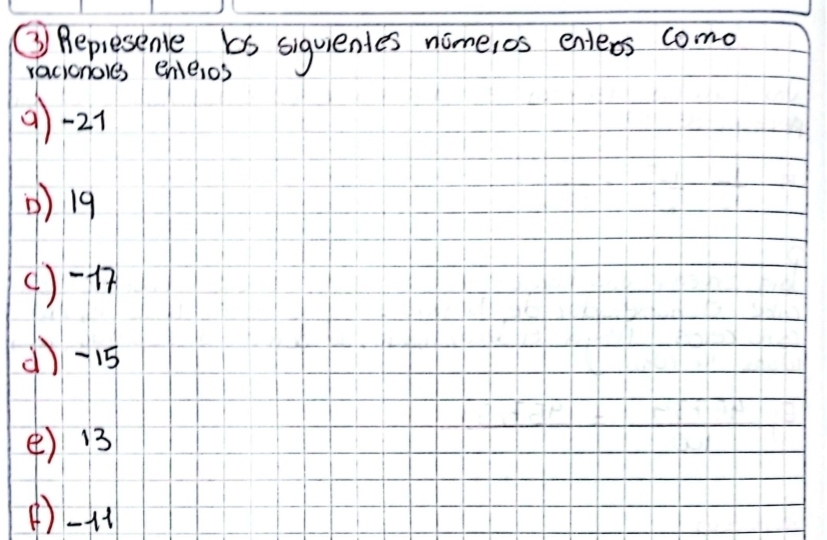 ③ Represente los siguientes números enteros como
racionales enteros
a) -21
b) 19
c) -17
d) -15
e) 13
f) -11